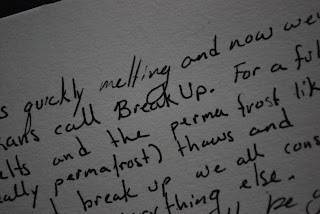 s quickly melting and now we
ans call Break Up. For a ful
elts and the perma frost lik
ally permafrost) thaws and
break up we all cons
rything else.
be